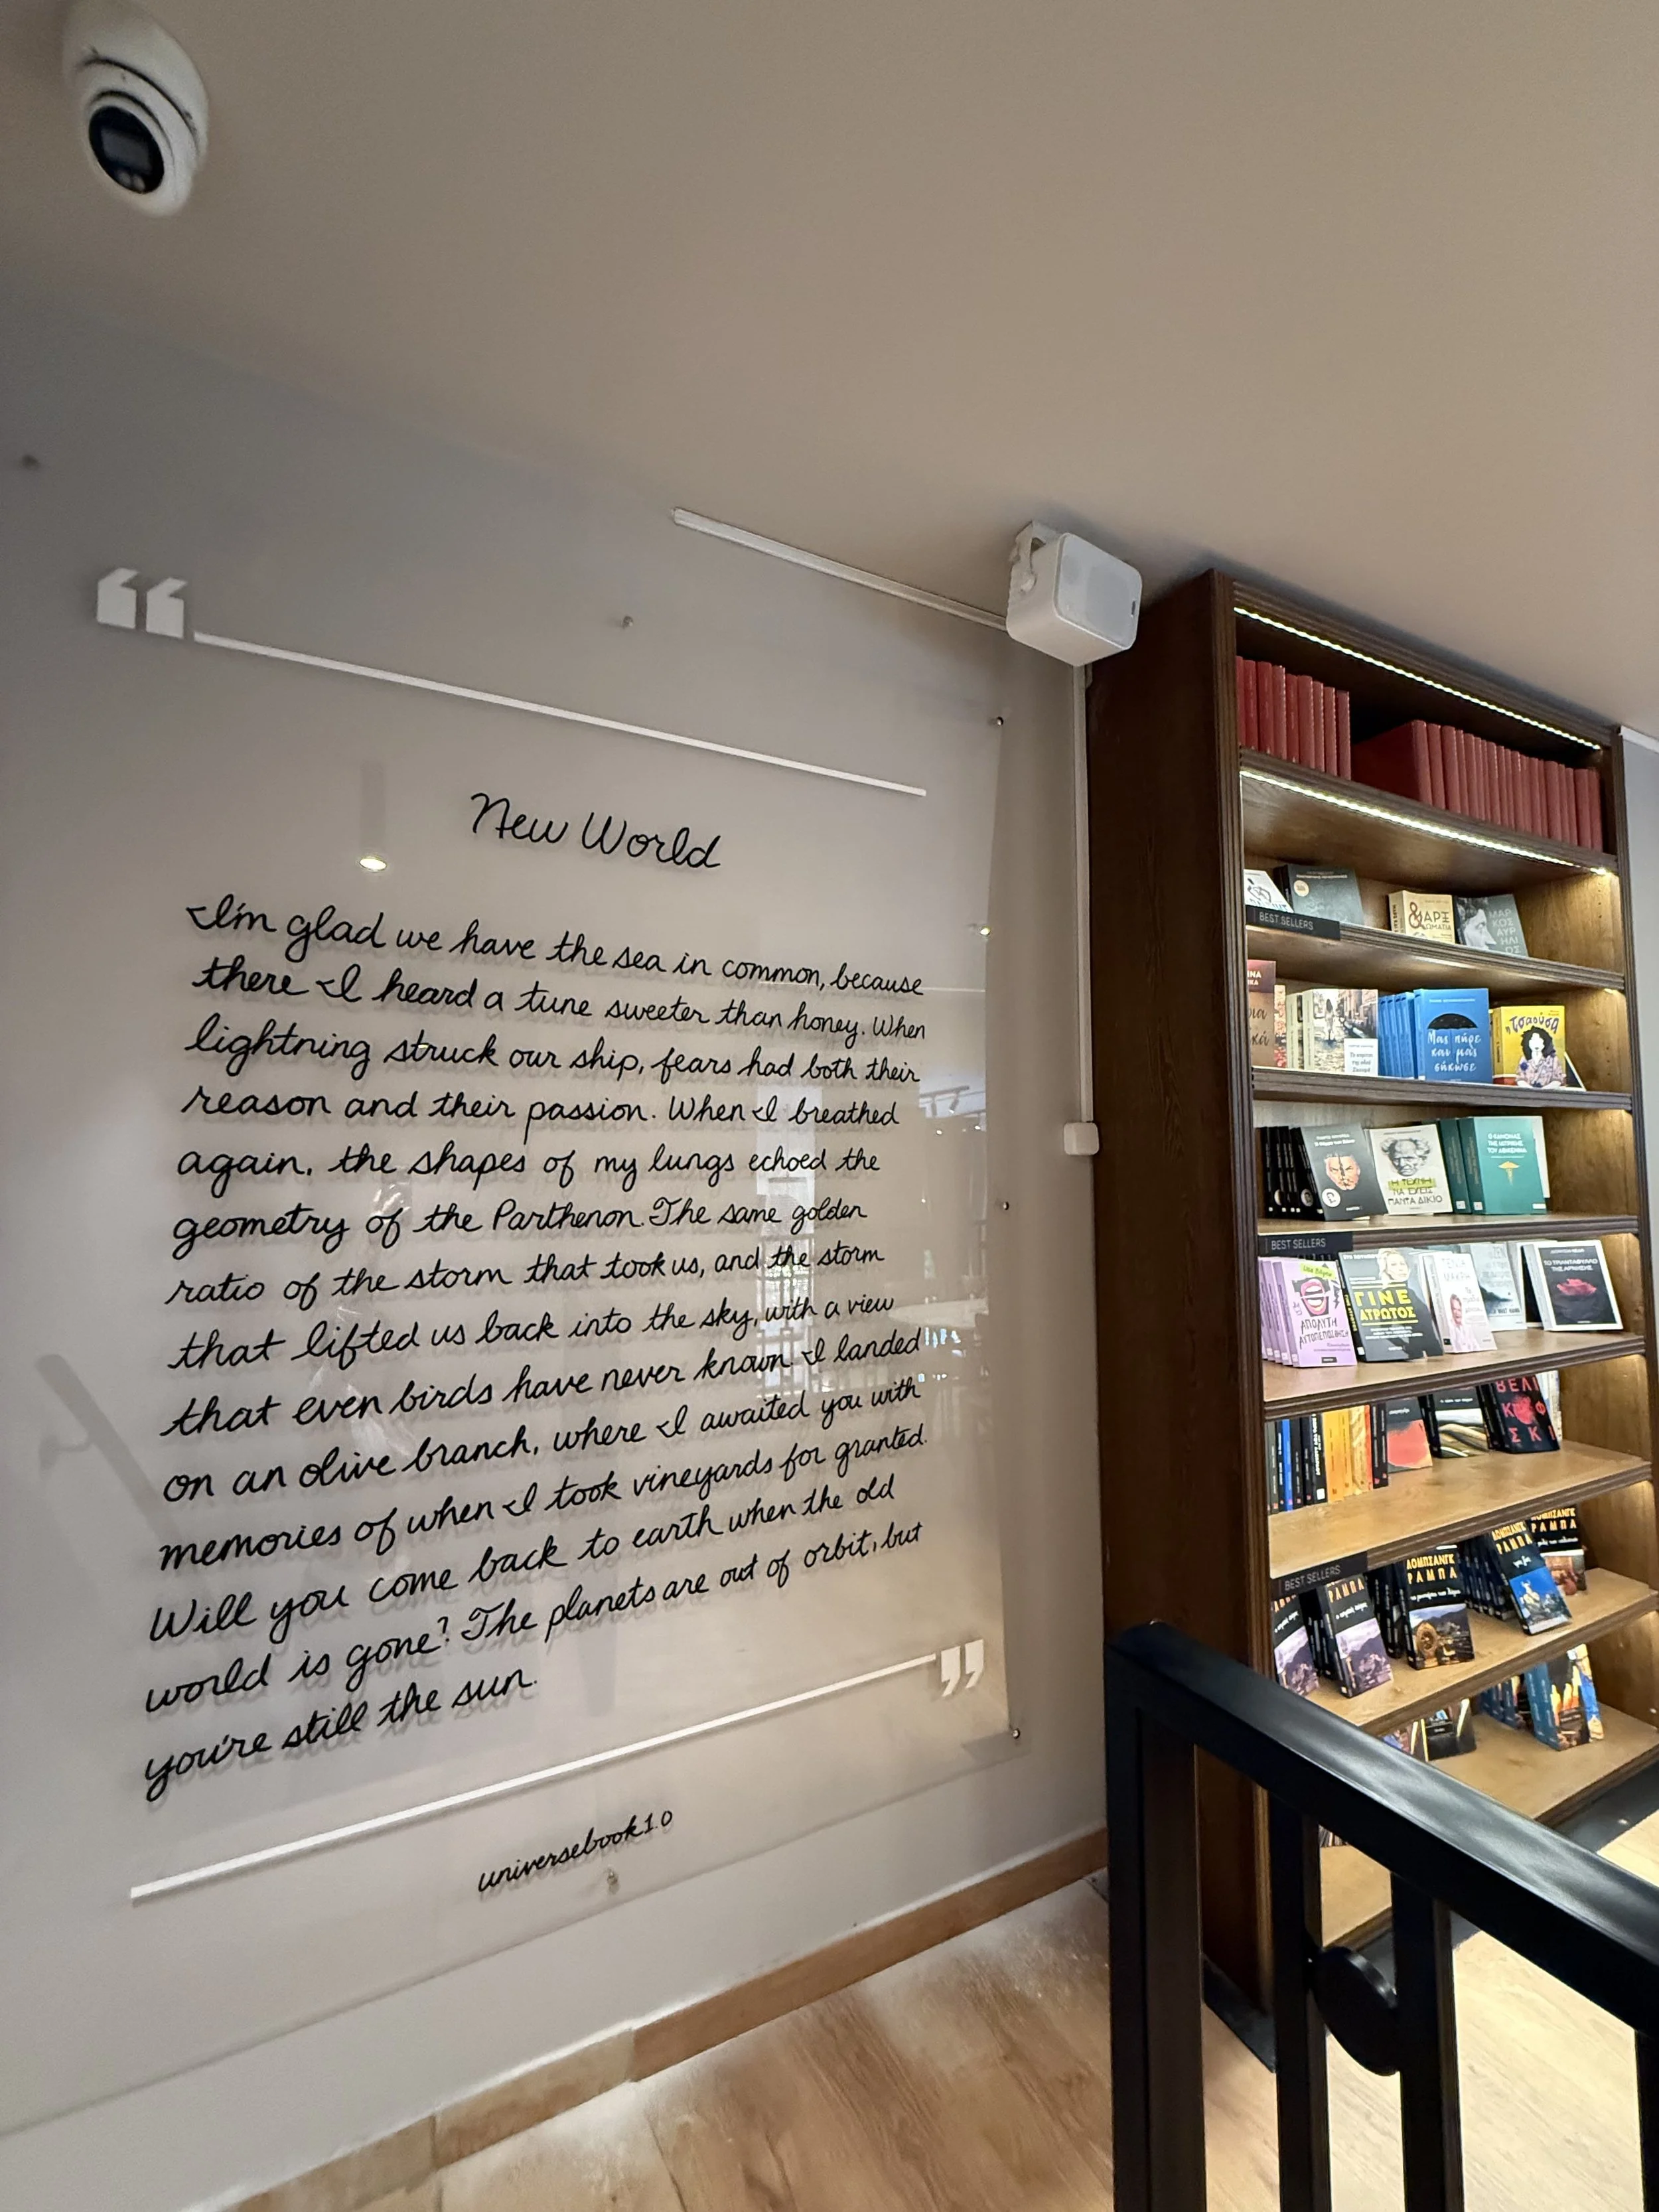 “
New World
I'm glad we have the sea in common, because
there I heard a tune sweeter than honey. When
lightning struck our ship, fears had both their
reason and their passion. When I breathed
again, the shapes of my lungs echoed the
geometry of the Parthenon. The same golden
ratio of the storm that took us, and the storm
that lifted us back into the sky, with a view
that even birds have never known. I landed
on an olive branch, where I awaited you with
memories of when I took vineyards for granted.
Will you come back to earth when the old
world is gone? The planets are out of orbit, but
you're still the sun.
”
universebook1.0
BEST SELLERS
&ΑΡΞ
ΜΑΡ
ΚΟΣ
ΑΥΡ
ΗΛΙ
ΟΣ
Μας πήρε
και μας
σήκωσε
η Τσαούσα
Η ΤΕΧΝΗ
ΝΑ ΕΧΕΙΣ
ΠΑΝΤΑ ΔΙΚΙΟ
Ο ΚΑΝΟΝΑΣ
ΤΗΣ ΙΑΤΡΙΚΗΣ
ΤΟΥ ΑΒΙΚΕΝΝΑ
BEST SELLERS
ΑΠΟΛΥΤΗ
ΑΥΤΟΠΕΠΟΙΘΗΣΗ
ΓΙΝΕ
ΑΤΡΩΤΟΣ
ΤΟ ΤΡΙΑΝΤΑΦΥΛΛΟ
BEST SELLERS
ΡΑΜΠΑ
ΛΟΜΠΣΑΝΓΚ
ΡΑΜΠΑ
ΛΟΜΠΣΑΝΓΚ
ΡΑΜΠΑ
ΛΟΜΠΣΑΝΓΚ
ΡΑΜΠΑ